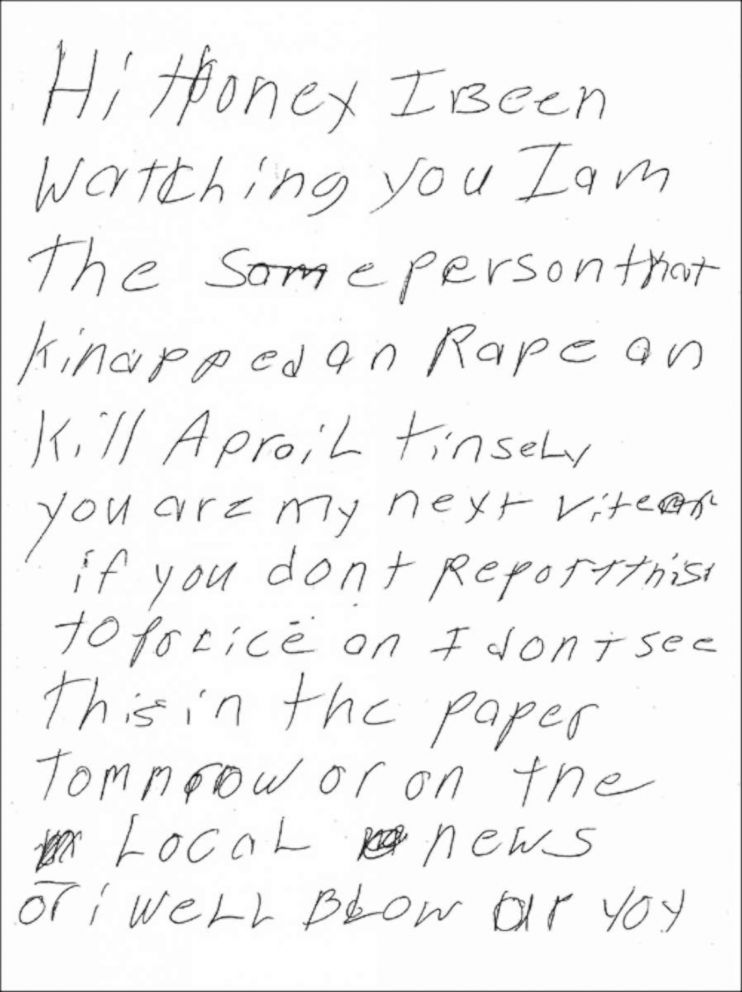 Hi Honey I Been
Watching you I am
The Same person that
kinapped an Rape an
Kill Aproil tinsely
you are my next
if you dont Report this
to police an I dont see
This in the paper
Tommorow or on the
Local news
or i well Blow yoy